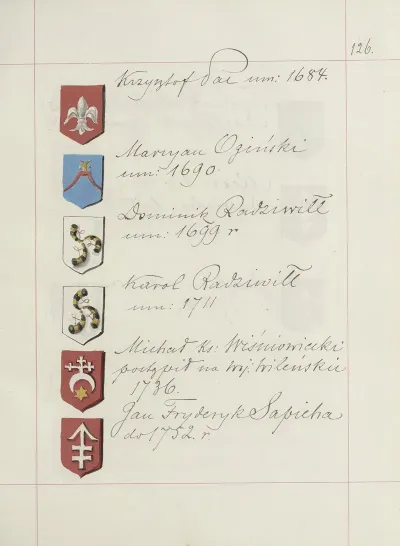 126.
Krzysztof Pac um: 1684.
Maryan Ogiński
um: 1690
Dominik Radziwiłł
um: 1699 r
Karol Radziwiłł
um: 1711
Michał Ks: Wiśniowiecki
postąpił na Wj: Wileńskie
1736.
Jan Fryderyk Sapieha
do 1752. r.